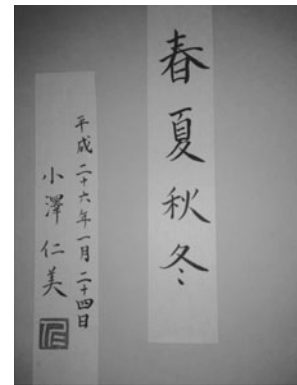 春夏秋冬
平成二十六年一月二十四日
小澤仁美